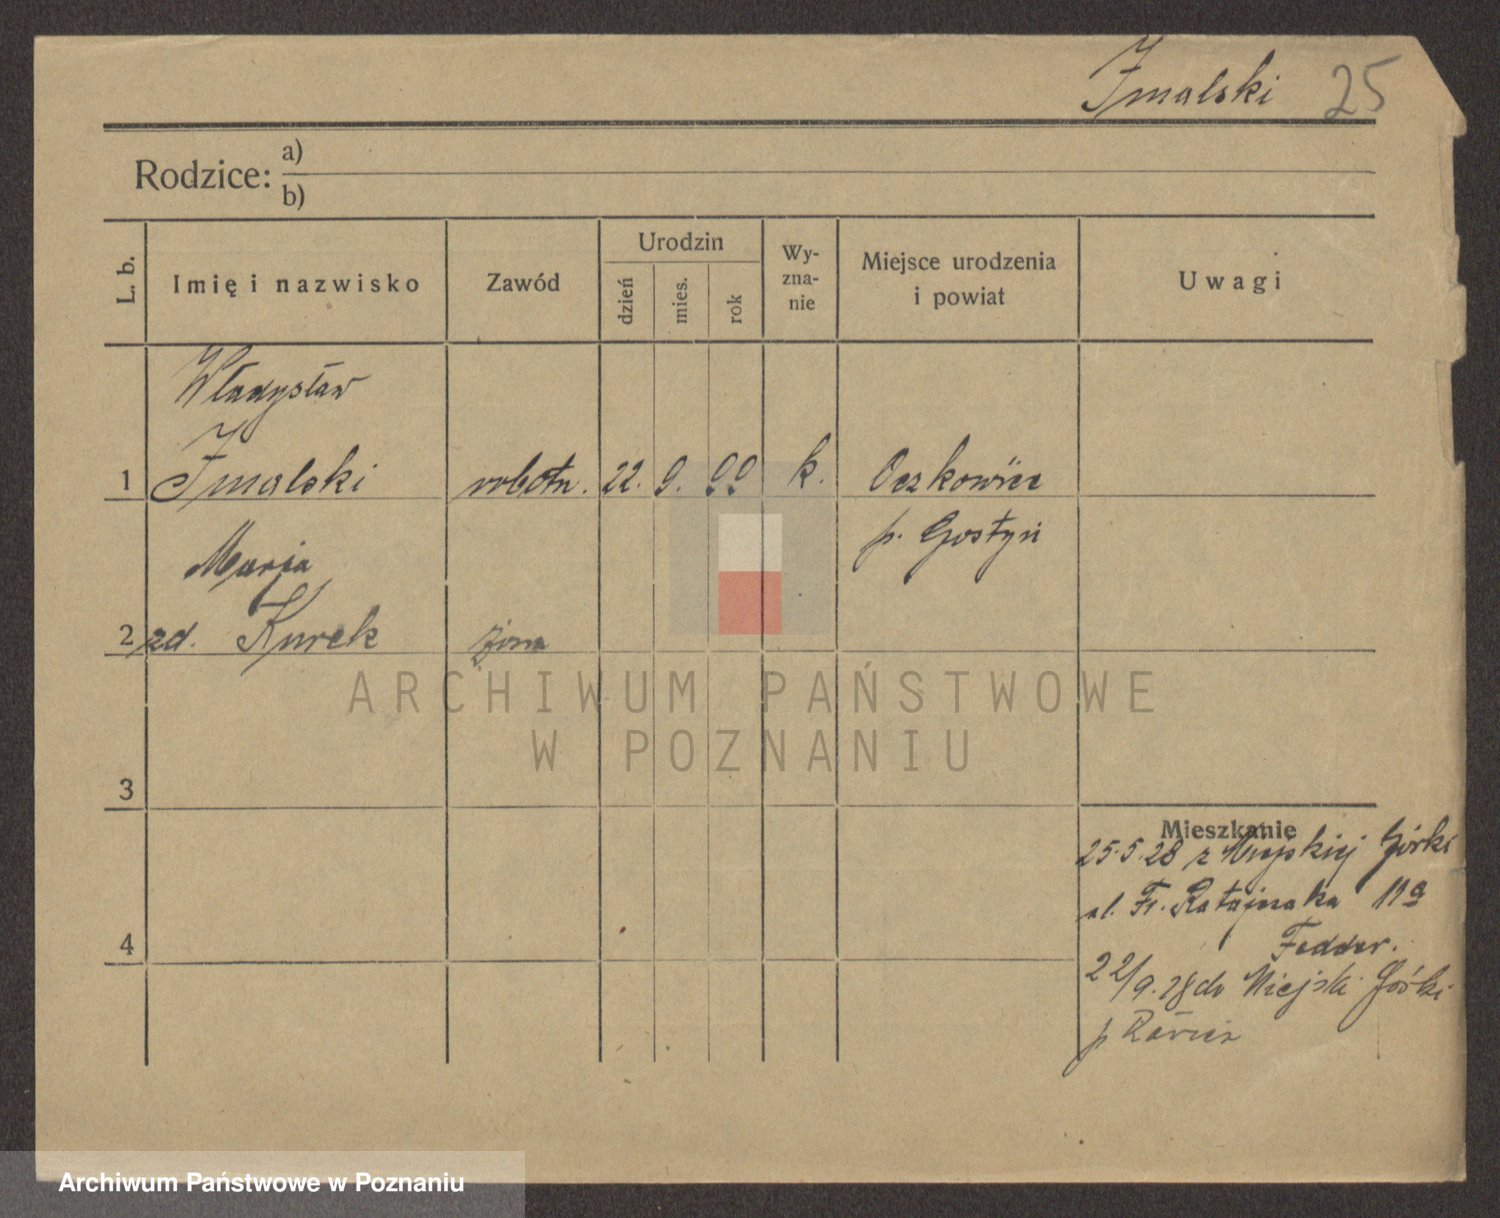 Jmalski 25
Rodzice: a)
b)
L. b. Imię i nazwisko Zawód Urodzin dzień mies. rok Wy-zna-nie Miejsce urodzenia i powiat Uwagi
Władysław
1 Jmalski robotn. 22. 9. 99 k. Oczkowice
p. Gostyń
Marja
2 zd. Kurek żona
ARCHIWUM PAŃSTWOWE
W POZNANIU
3
Mieszkanie
25.5.28 z Miejskiej Górki
ul. Fr. Ratajczaka 11a
4
Fedder.
22/9.28 do Miejski Górki
p Rawicz
Archiwum Państwowe w Poznaniu